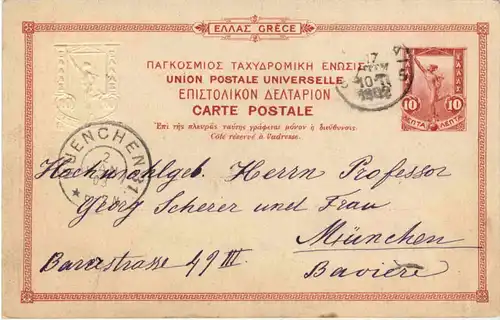 ΕΛΛΑΣ GRÈCE
ΠΑΓΚΟΣΜΙΟΣ ΤΑΧΥΔΡΟΜΙΚΗ ΕΝΩΣΙΣ
UNION POSTALE UNIVERSELLE
ΕΠΙΣΤΟΛΙΚΟΝ ΔΕΛΤΑΡΙΟΝ
CARTE POSTALE
Ἐπὶ τῆς πλευρᾶς ταύτης γράφεται μόνον ἡ διεύθυνσις.
Côté réservé à l'adresse.
ΕΛΛΑΣ
10 10
ΛΕΠΤΑ ΛΕΠΤΑ
17
1902
MUENCHEN
Hochwohlgeb. Herrn Professor
Georg Scherer und Frau
München
Barerstrasse 49 III
Bavière